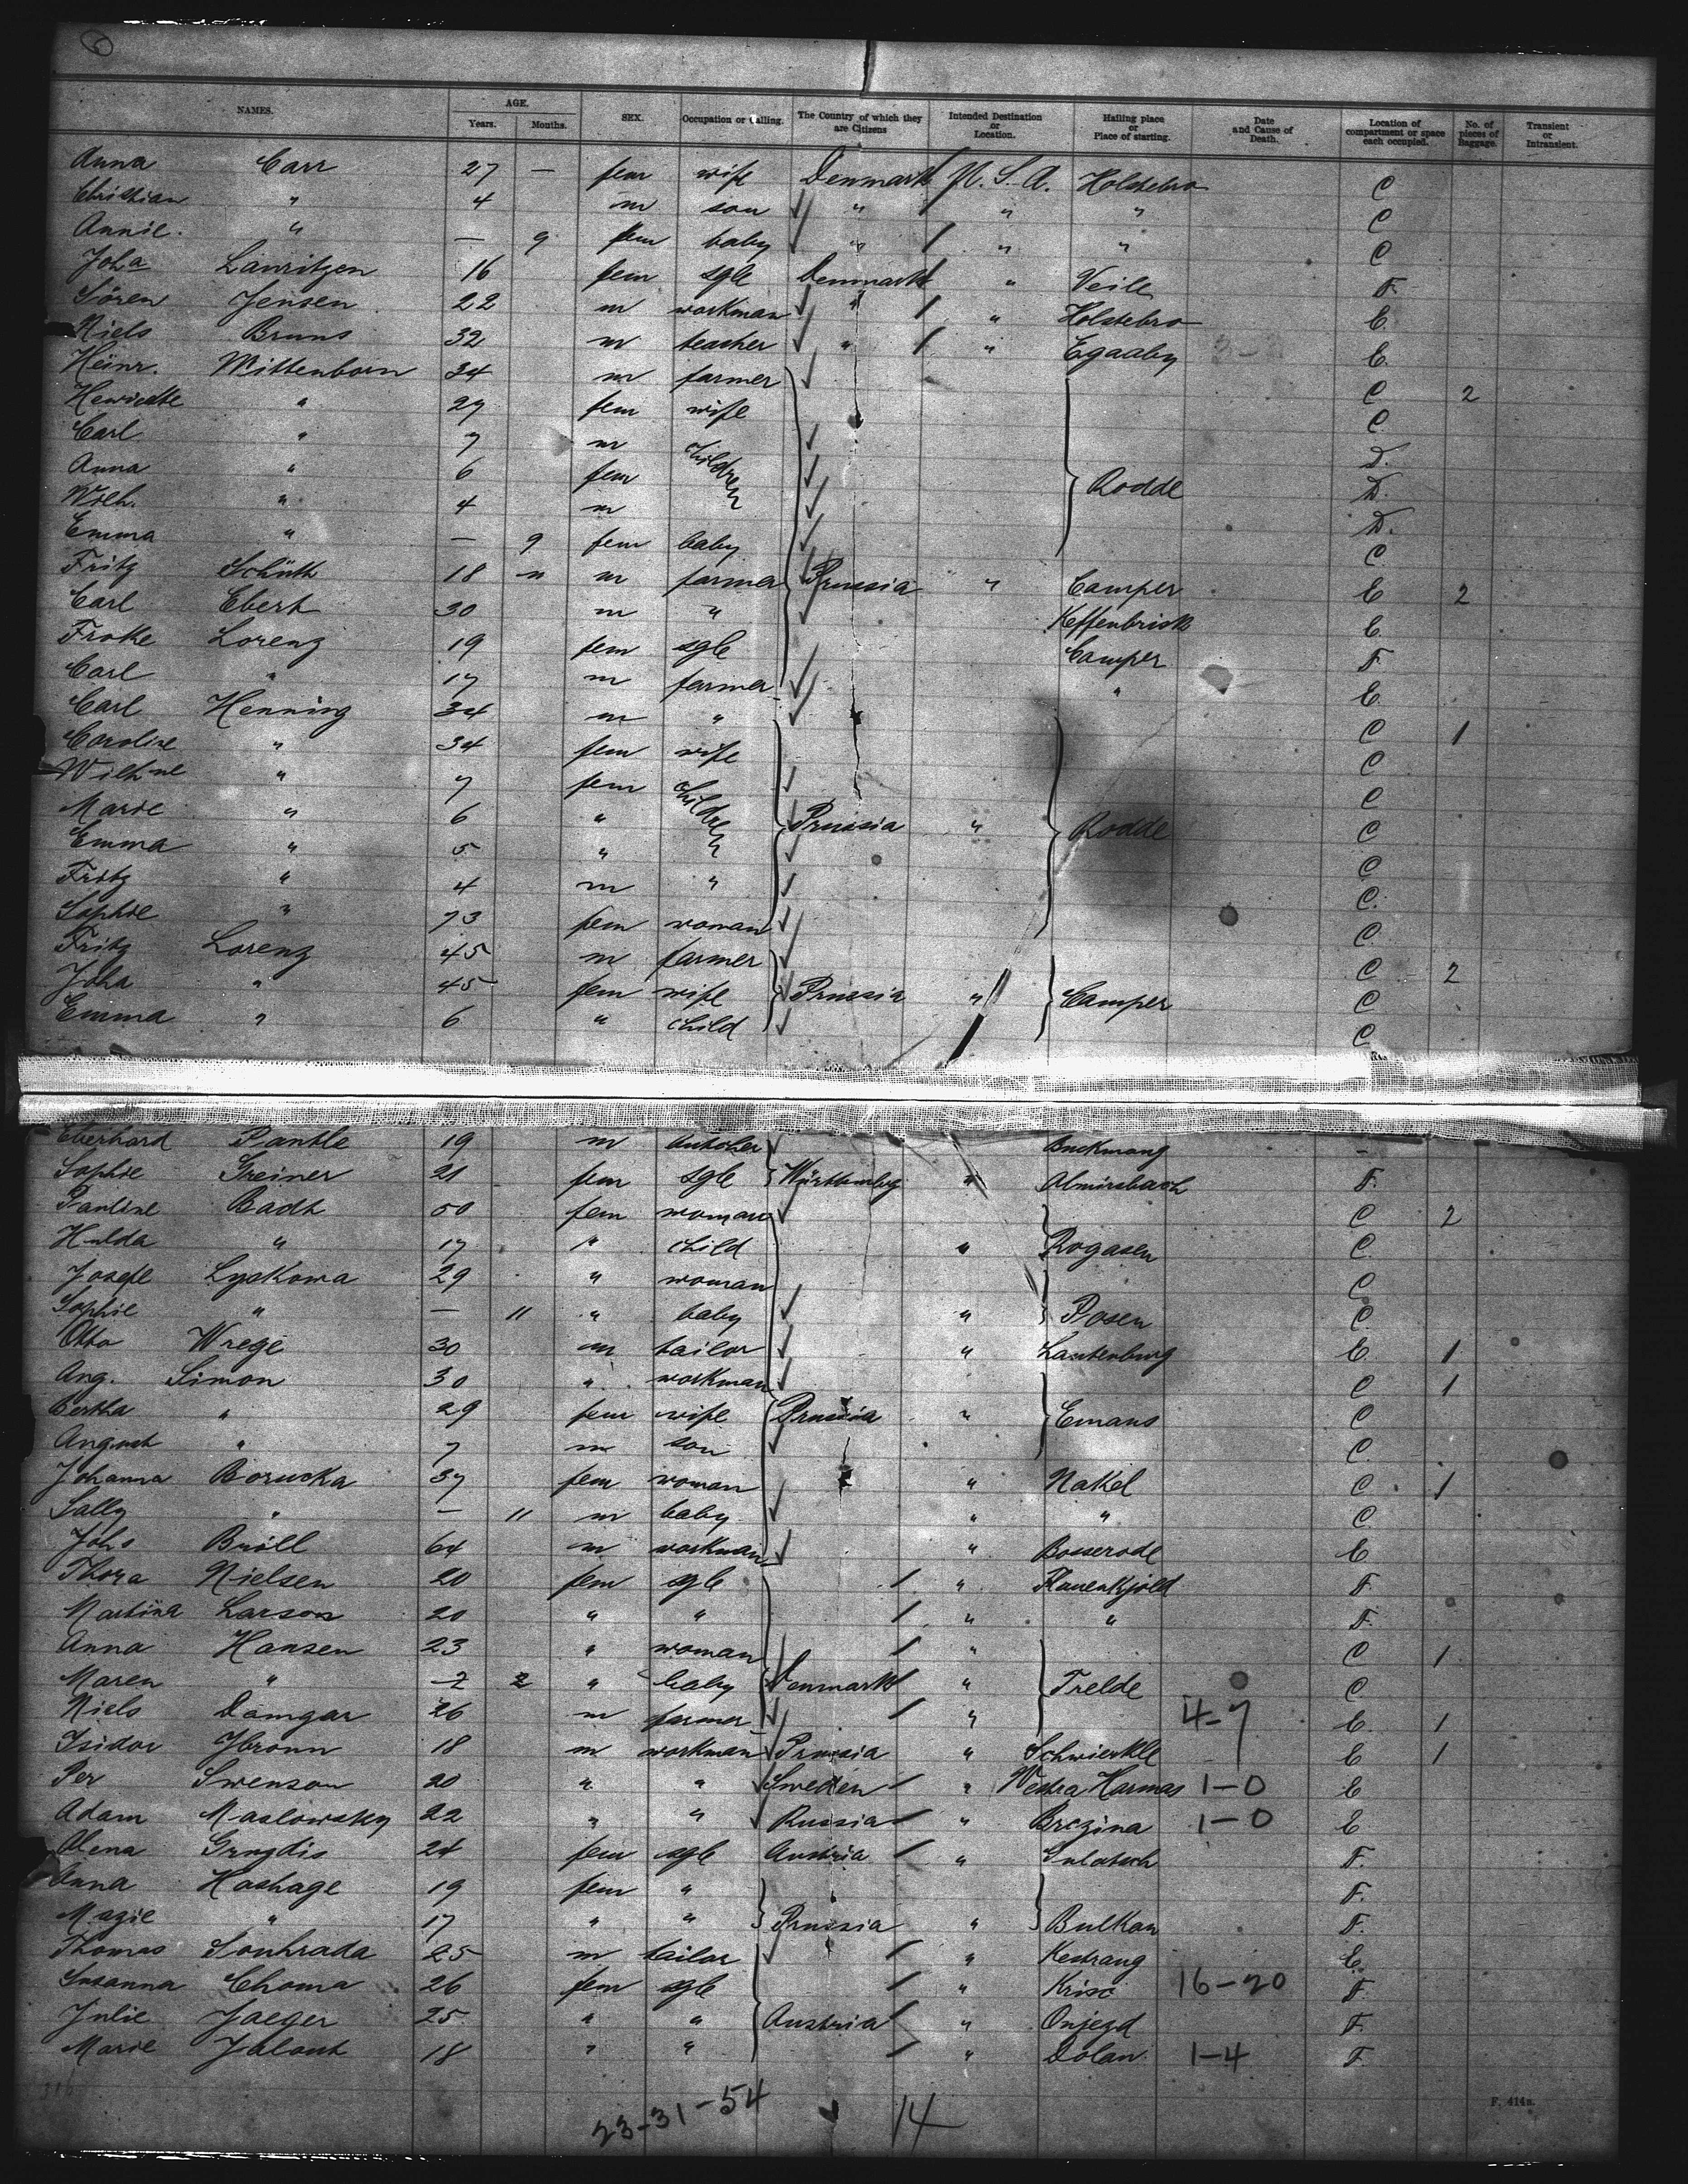 6
NAMES. AGE. Years. Months. SEX. Occupation or Calling. The Country of which they are Citizens Intended Destination or Location. Hailing place or Place of starting. Date and Cause of Death. Location of compartment or space each occupied. No. of pieces of Baggage. Transient or Intransient.
Anna Carr 27 — fem wife Denmark U. S. A. Holstebro C
Christian " 4 m son " " " C
Annie. " — 9 fem baby " " " C
Joha Lauritzen 16 fem sgle Denmark " Veile F.
Sören Jensen 22 m workman " " Holstebro E.
Niels Bruns 32 m teacher " " Egaaby E.
Heinr. Mittenborn 34 m farmer C 2
" 27 fem wife C
Carl " 7 m children D.
Anna " 6 fem Rodde D.
Wilh. " 4 m D.
Emma " — 9 fem baby C
Fritz Schüth 18 " m farmer Prussia " Camper E 2
Carl Ebert 30 m " E
Lorenz 19 fem sgle Camper F
Carl " 17 m farmer " E.
Carl Henning 34 m " C 1
Caroline " 34 fem wife C
Wilhne " 7 fem children C
Marie " 6 " Prussia " Rodde C
Emma " 5 " C
Fritz " 4 m " C.
Sophie " 73 fem woman C.
Fritz Lorenz 45 m farmer C 2
Joha " 45 fem wife Prussia " Camper C
Emma " 6 " child C
Eberhard Pantle 19 m butcher Backnang
Sophie Greiner 21 fem sgle Württemberg " Almirsbach F.
Pauline Badt 50 fem woman C 2
Hulda " 17 " child " Rogasen C.
Josefe Lyskowa 29 " woman C
Sophie " — 11 " baby " Posen C.
Otto Wrege 30 m tailor " Lautenburg E. 1
Aug. Simon 30 " workman C 1
Bertha " 29 fem wife Prussia " Emaus C
August " 7 m son C.
Johanna Borucka 37 fem woman " Nakel C. 1
Sally " — 11 m baby " " C.
Johs Bröll 64 m workman " Bosserode E
Thora Nielsen 20 fem sgle " Flauenkjold F.
Martina Larson 20 " " " " F.
Anna Hansen 23 " woman " C 1
Maren " 2 " baby Denmark " Trelde C
Niels Damgar 26 m farmer " 4-7 E. 1
Isidor 18 m workman Prussia " Schwierkle E 1
Per Swenson 20 " " Sweden " Westra Harmas 1-0 E
Adam Maslowsky 22 " " Russia " Brezina 1-0 E
Olena Grugdis 24 fem sgle Austria " F.
Anna Hashage 19 fem " F.
Magie " 17 " " Prussia " Bulkau F.
Thomas Souhrada 25 m tailor " Kestrang E.
Susanna Choma 26 fem sgle " 16-20 F.
Julie Jaeger 25 " " Austria " Onjezd F.
Marie Jalout 18 " " " Dolan 1-4 F
23-31-54 14
F. 414a.